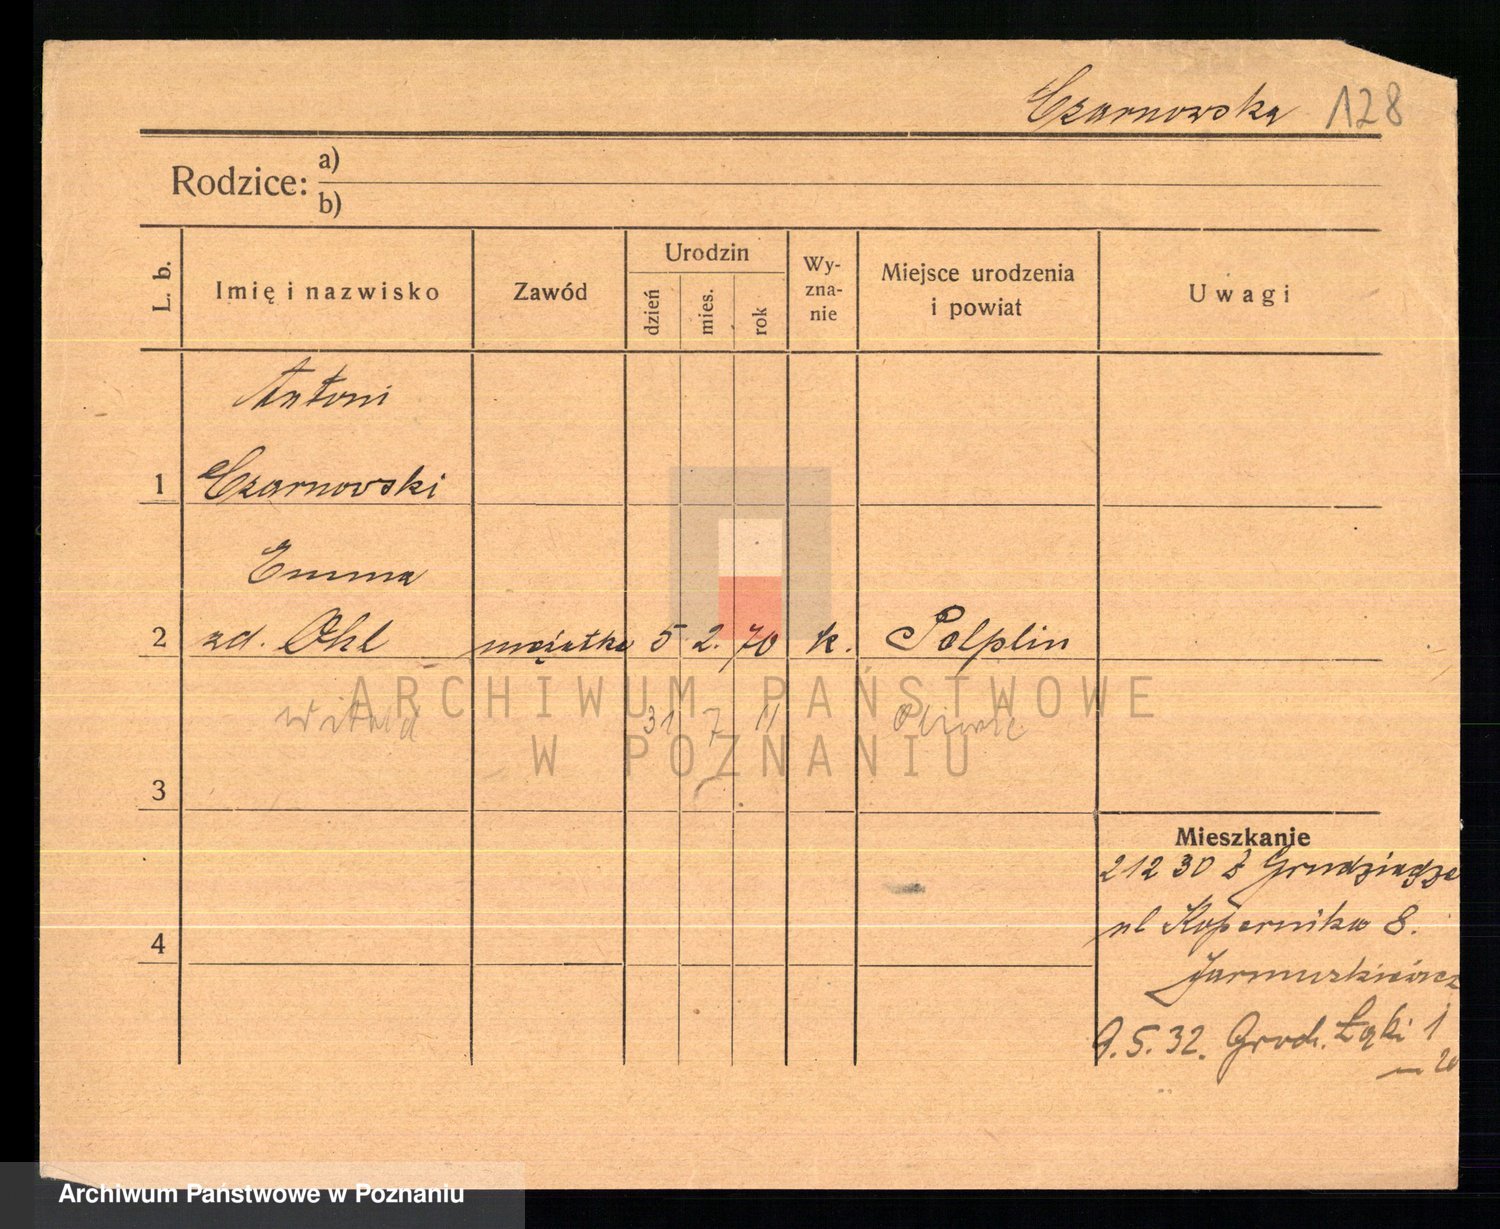 Czarnowska 128
Rodzice: a)
b)
L. b.
Imię i nazwisko
Zawód
Urodzin
dzień
mies.
rok
Wy-
zna-
nie
Miejsce urodzenia
i powiat
Uwagi
Antoni
1 Czarnowski
Emma
2 zd. Ohl mężatka 5 2. 70 k. Pelplin
ARCHIWUM PAŃSTWOWE
Witold 31 7 11
W POZNANIU
3
Mieszkanie
212 30 Z Grudziądza
ul Kopernika 8.
4
Jarmuszkiewicz
9.5.32. Grod. Łąki 1
m 20
Archiwum Państwowe w Poznaniu